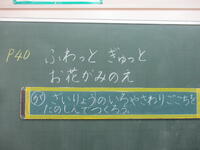 P40
ふわっと ぎゅっと
お花がみのえ
ざいりょうのいろやさわりごごちを
たのしんでつくろう。